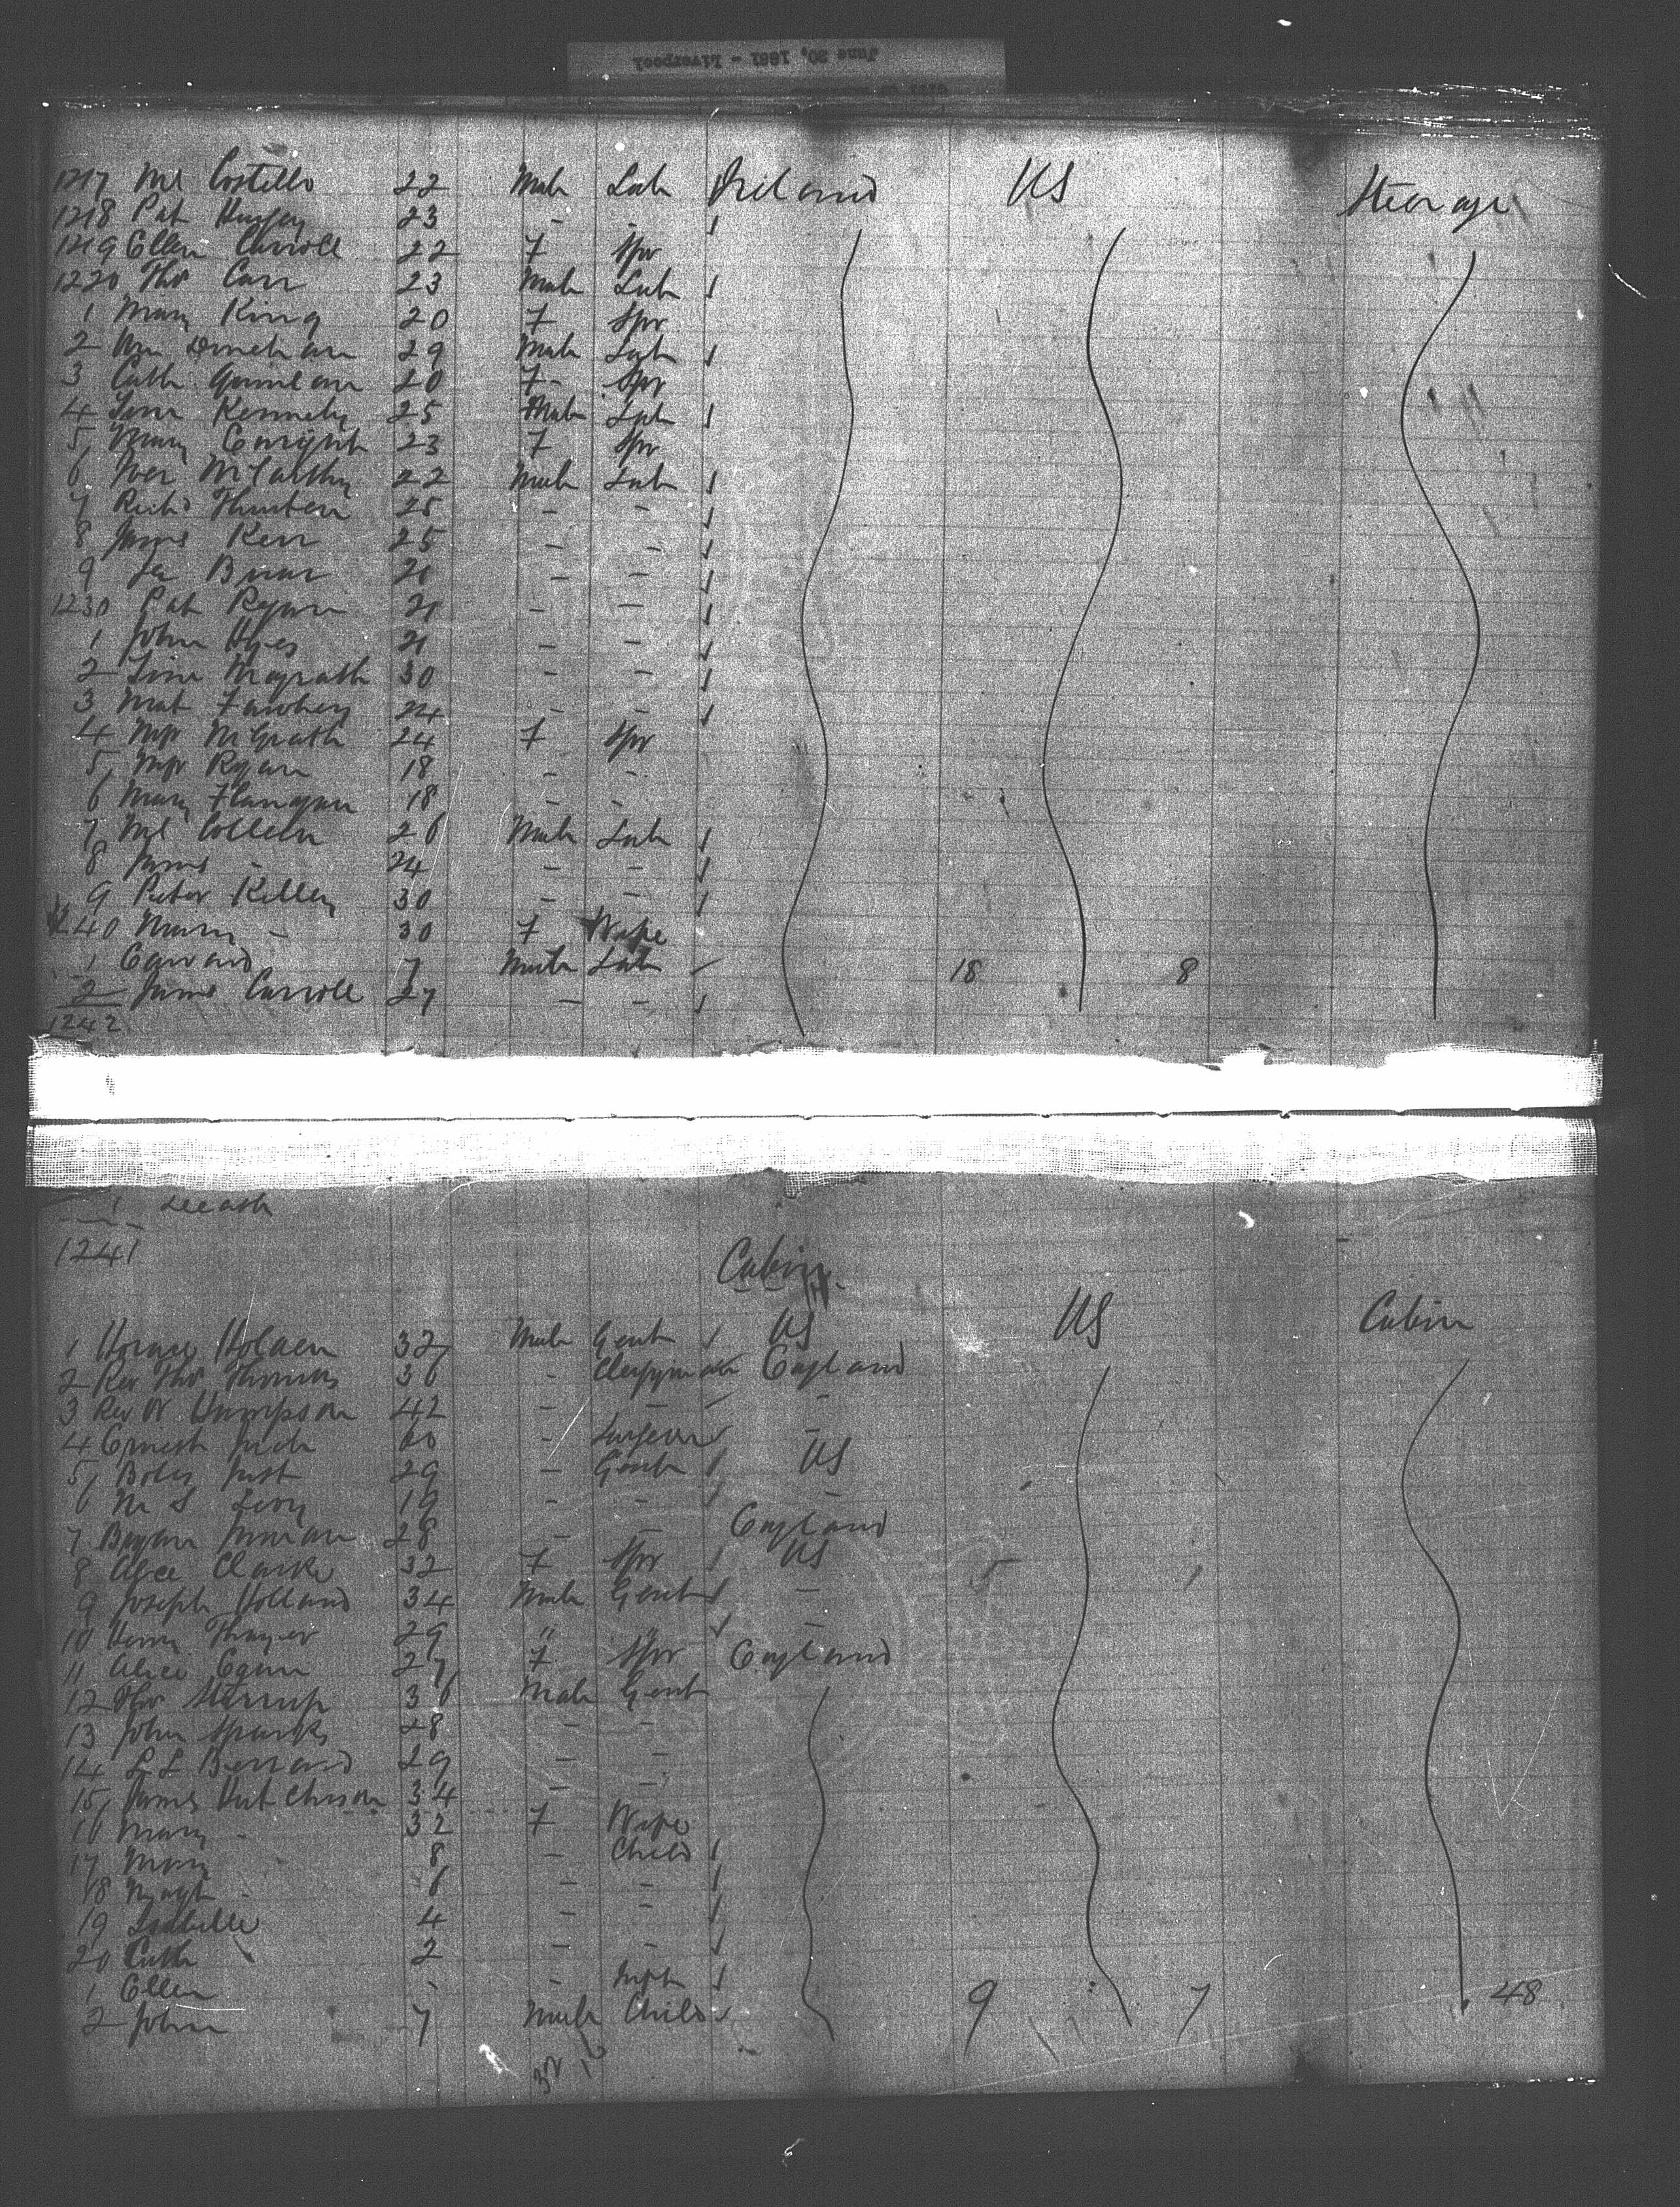 June 20, 1881 - Liverpool
1217 Ml Costello 22 Male Lab Ireland US Steerage
1218 Pat 23 - -
1219 Ellen Carroll 22 F Spr
1220 Thos Carr 23 Male Lab
1 Mary King 20 F Spr
2 29 Male Lab
3 Cath Quinlan 20 F - Spr
4 Kennedy 25 Male Lab
5 Mary Enright 23 F Spr
6 McCarthy 22 Male Lab
7 Richd 25 - -
8 James Kerr 25 - -
9 21 - -
1230 Pat Ryan 21 - -
1 John Hyes 21 - -
2 Magrath 30 - -
3 Mat 24 - -
4 Mgr McGrath 24 F Spr
5 Mgr Ryan 18 - -
6 Mary Flanagan 18 - -
7 Ml Colleen 26 Male Lab
8 James - 24 - -
9 Peter Kelley 30 - -
1240 Mary - 30 F Wife
1 Edward 7 Male Lab 18 8
2 James Carroll 27 - -
1242
1 Death
1241
Cabin
US Cabin
1 Horace Holden 32 Male Gent US
2 Rev Thos Thomas 36 - Clergyman England
3 Rev W Thompson 42 - - -
4 Ernest 60 - Surgeon -
5 Just 29 - Gent US
6 M S Levy 19 - - -
7 28 - - England
8 Alice Clarke 32 F Spr US
9 Joseph Holland 34 Male Gent -
10 Henry Thayer 29 " " -
11 Alice Egan 27 F Spr England
12 Thos Stirrup 36 Male Gent
13 John Sparks 28 - -
14 L L Bernard 29 - -
15 James Hutchison 34 - -
16 Mary - 32 F Wife
17 Mary 8 - Child
18 Magt - 6 - -
19 Isabella 4 - -
20 Cath 2 - -
1 Ellen - - Inft
2 John 7 Male Child 9 7 48
32 16